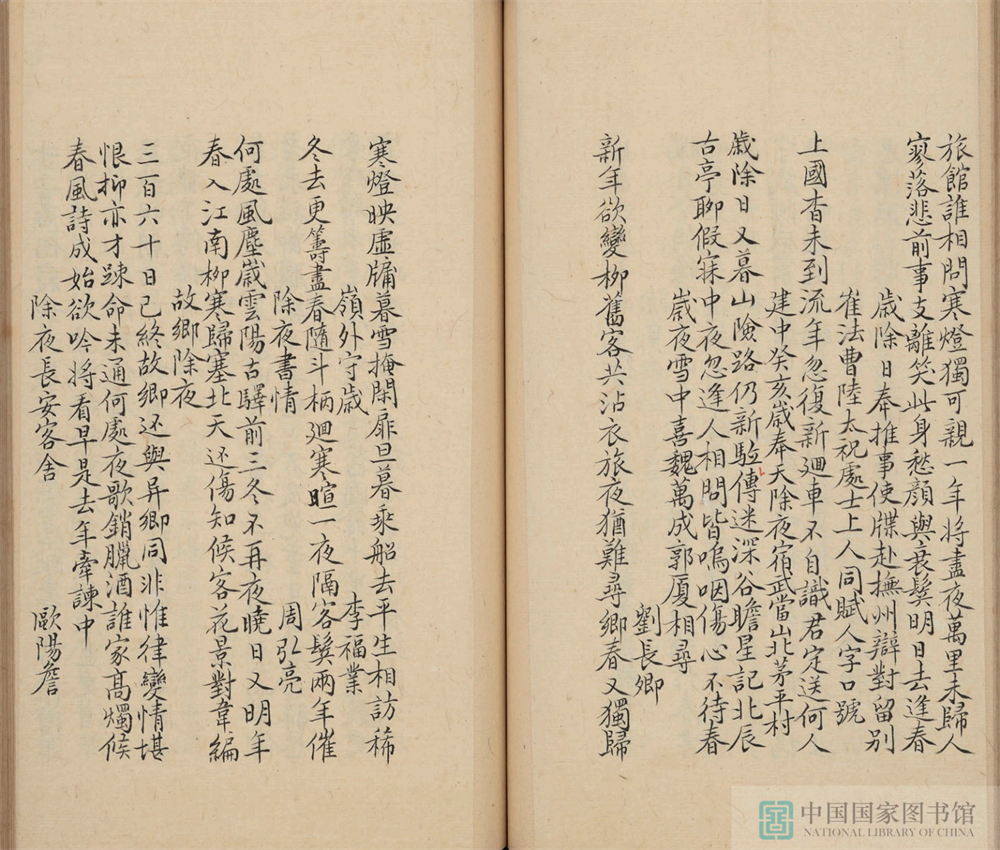 旅館誰相問寒燈獨可親一年将盡夜萬里未歸人
寥落悲前事支離笑此身愁顔與衰鬓明日去逢春
歲除日奉推事使牒赴撫州辯對留别
崔法曹陸太祝處士上人同賦人字口號
上國杳未到流年忽復新迴車不自識君定送何人
建中癸亥歲奉天除夜宿武當山北茅平村
歲除日又暮山險路仍新驅傳迷深谷瞻星記北辰
古亭聊假寐中夜忽逢人相問皆嗚咽傷心不待春
歲夜雪中喜魏萬成郭厦相尋
劉長卿
新年欲變柳舊客共沾衣旅夜猶難尋鄉春又獨歸
寒燈映虚牖暮雪掩閑扉旦暮乘船去平生相訪稀
嶺外守歲
李福業
冬去更籌盡春隨斗柄迴寒暄一夜隔客鬓兩年催
除夜書情
周弘亮
何處風塵歲雲陽古驛前三冬不再夜曉日又明年
春入江南柳寒歸塞北天还傷知候客花景對韋編
故鄉除夜
三百六十日已終故鄉还與异鄉同非惟律變情堪
恨抑亦才踈命未通何處夜歌銷臘酒誰家髙燭候
春風詩成始欲吟将看早是去年牽諫中
除夜長安客舍
歐陽詹
中国国家图书馆
NATIONAL LIBRARY OF CHINA